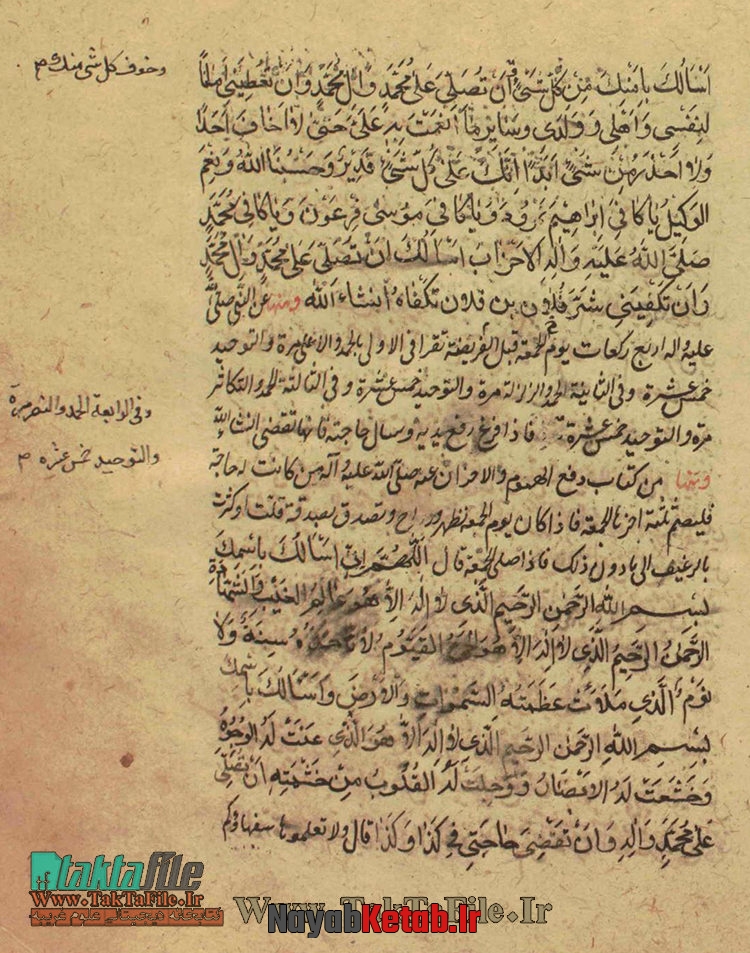 وخوف كل شئ منك م
اسالك بامنك من كل شئ ان تصلى على محمد وال محمد وان تعطينى امانا
لنفسى واهلى وولدى وساير ما انعمت به على حتى لا اخاف احدا
ولا احذر من شئ ابدا انك على كل شئ قدير وحسبنا الله ونعم
الوكيل يا كافى ابراهيم نمرود ويا كافى موسى فرعون ويا كافى محمد
صلى الله عليه واله الاحزاب اسالك ان تصلى على محمد وال محمد
وان تكفينى شر فلان بن فلان تكفاه انشاء الله ومنها عن النبى صلى الله
عليه اله اربع ركعات يوم الجمعة قبل الفريضة تقرا فى الاولى بالحمد والاعلى مرة والتوحيد
خمس عشرة وفى الثانية الحمد والزلزلة مرة والتوحيد خمس عشرة وفى الثالثة الحمد والتكاثر
مرة والتوحيد خمس عشرة فاذا فرغ رفع يديه وسال حاجته فانها تقضى انشاالله
وفى الرابعة الحمد والنصر مرة
والتوحيد خمس عشره م
ومنها من كتاب دفع الهموم والاحزان عنه صلى الله عليه آله من كانت له حاجة
فليصم ثلثة اخرها الجمعة فاذا كان يوم الجمعة تطهر وراح وتصدق بصدقة قلت او كثرت
بالرغيف الى ما دون ذلك فاذا صلى الجمعة قال اللهم انى اسالك باسمك
بسم الله الرحمن الرحيم الذى لا اله الا هو عالم الغيب والشهادة
الرحمن الرحيم الذى لا اله الا هو الحى القيوم لا تاخذه سنة ولا
نوم الذى ملات عظمته السموات والارض واسالك باسمك
بسم الله الرحمن الرحيم الذى لا اله الا هو الذى عنت له الوجوه
وخشعت له الابصار ووجلت له القلوب من خشيته ان تصلى
على محمد واله وان تقضى حاجتى فى كذا وكذا قال ولا تعلموها سفهاؤكم
taktafile
Www.TakTaFile.Ir
Www.TakTaFile.Ir
NayabKetab.ir